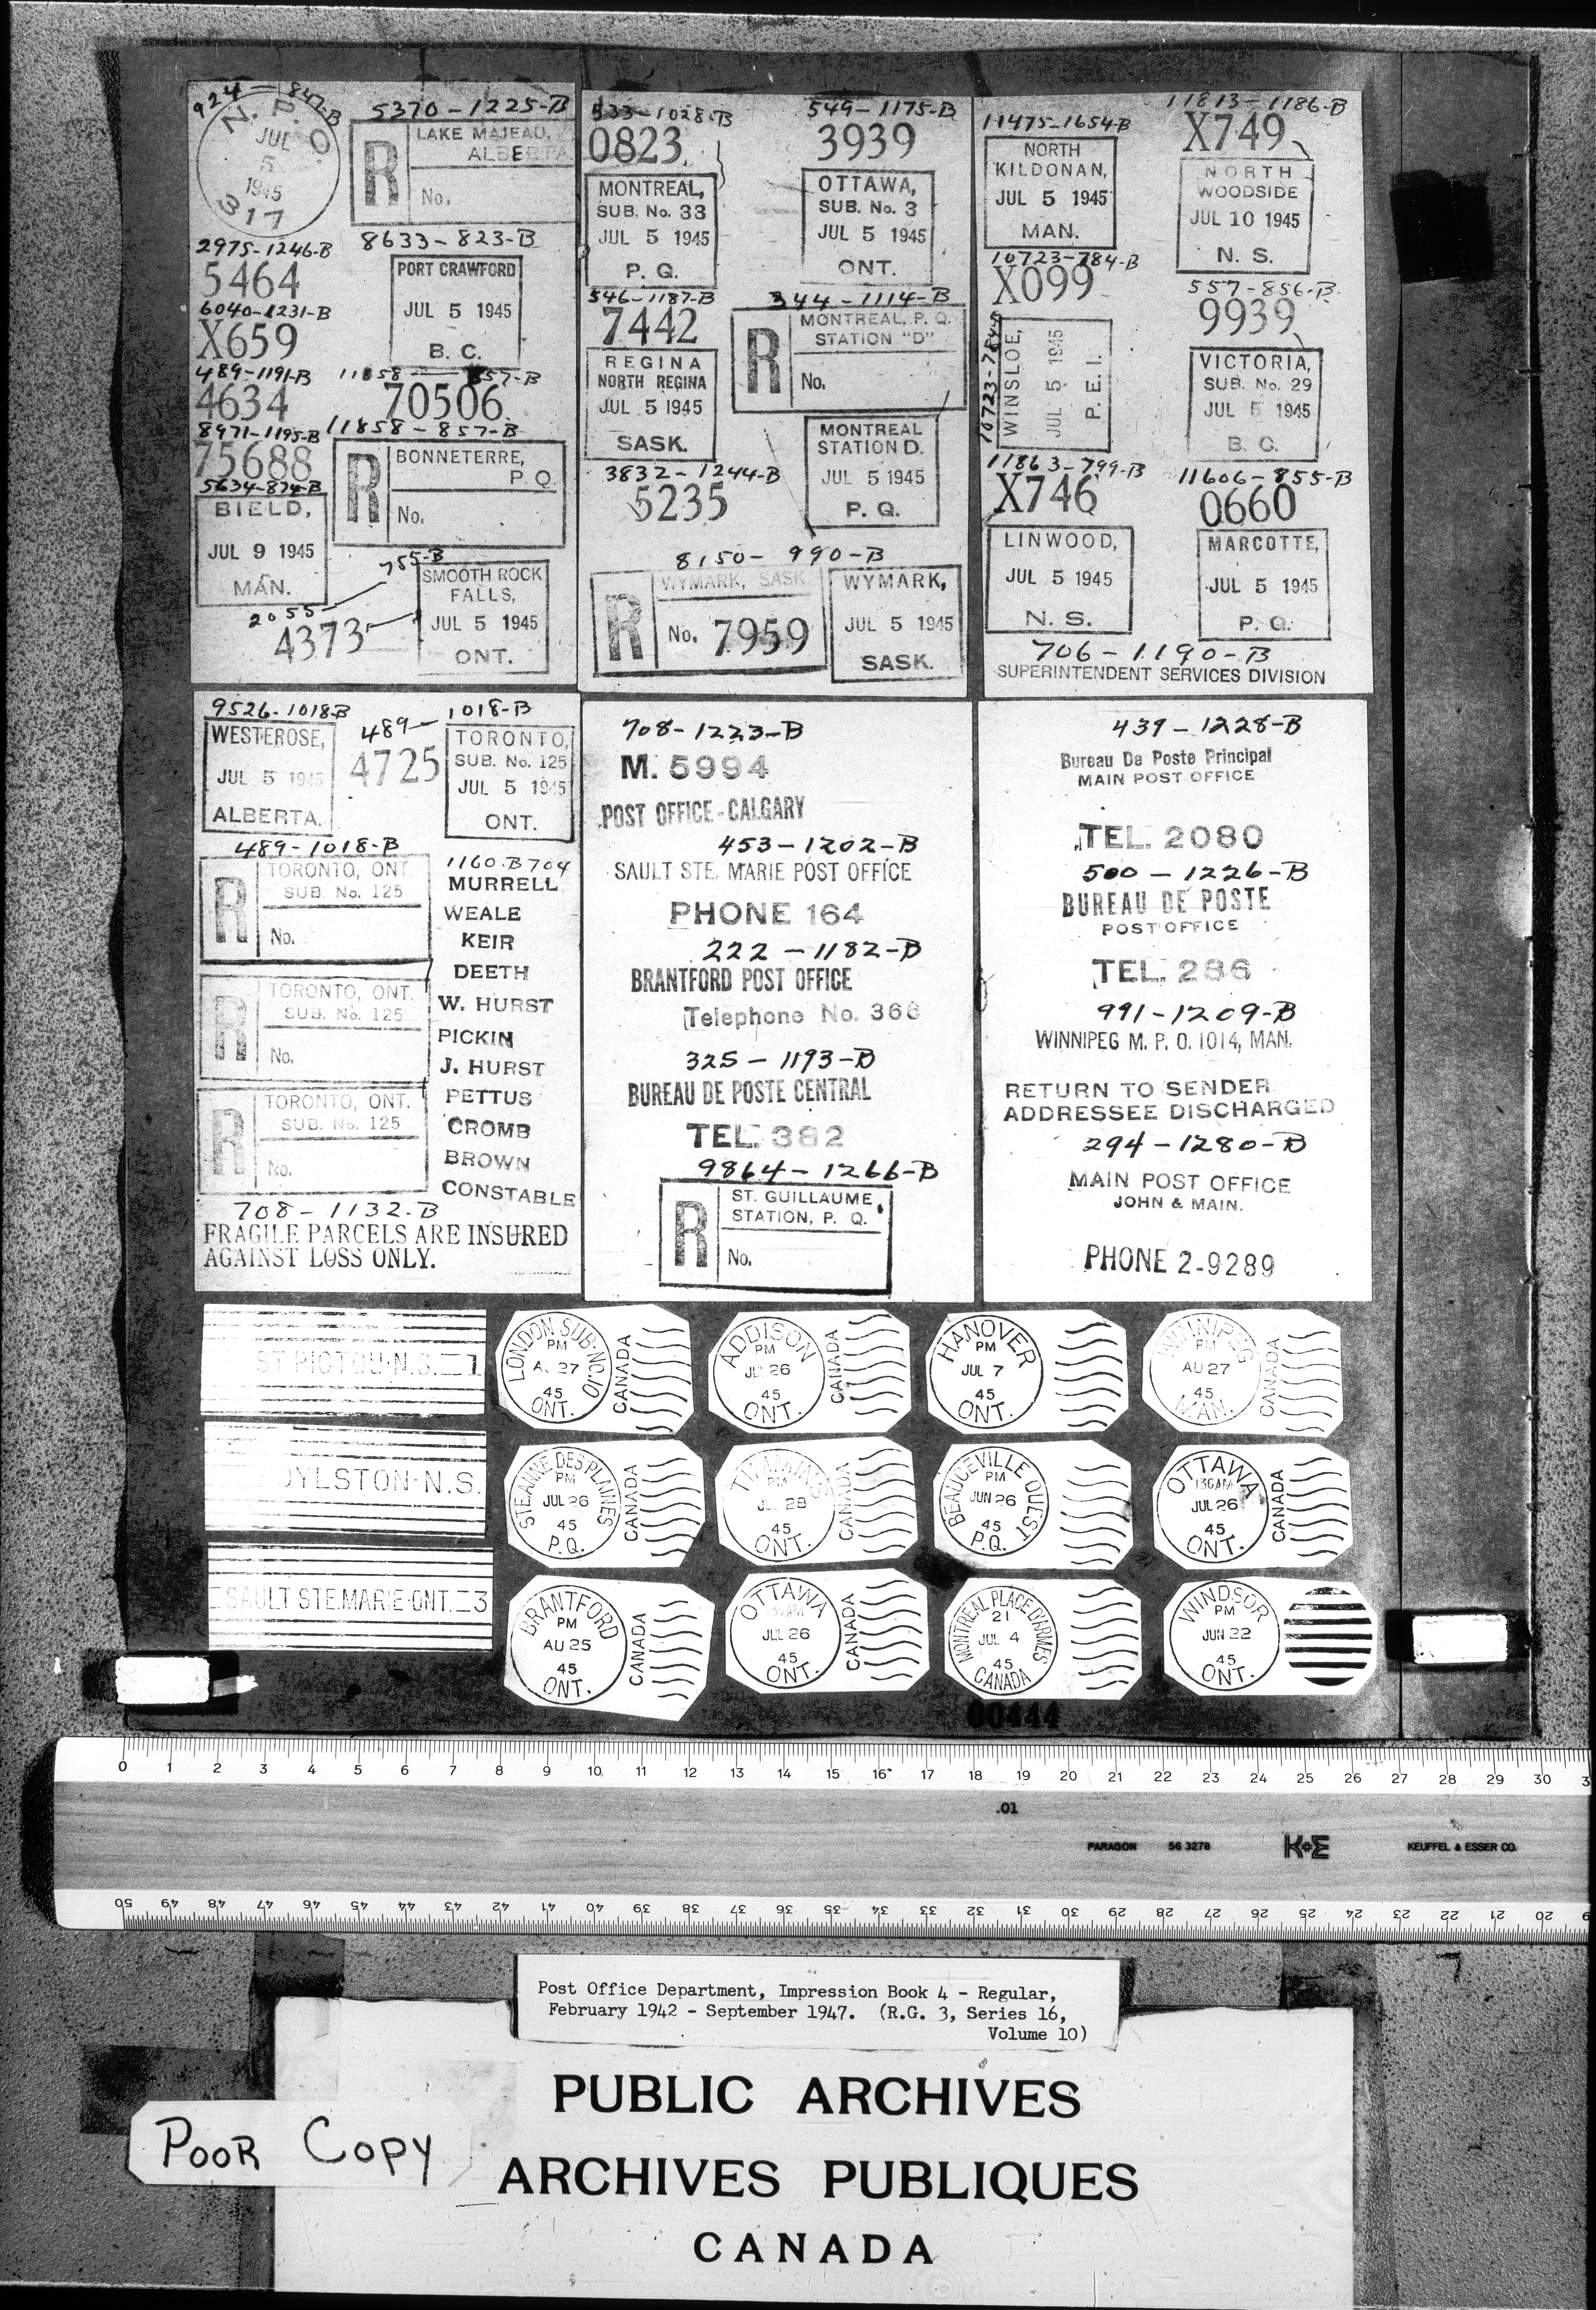 924-847-B
N. P. O.
JUL
5
1945
317
5370-1225-B
R
LAKE MAJEAU,
ALBERTA
No.
2975-1246-B
5464
8633-823-B
PORT CRAWFORD
JUL 5 1945
B. C.
6040-1231-B
X659
489-1191-B
4634
11858-857-B
70506
8971-1195-B
75688
11858-857-B
R
BONNETERRE,
P. Q.
No.
5634-874-B
BIELD,
JUL 9 1945
MAN.
755-B
2055-
4373
SMOOTH ROCK
FALLS,
JUL 5 1945
ONT.
533-1028-B
0823
MONTREAL,
SUB. No. 33
JUL 5 1945
P. Q.
549-1175-B
3939
OTTAWA,
SUB. No. 3
JUL 5 1945
ONT.
546-1187-B
7442
REGINA
NORTH REGINA
JUL 5 1945
SASK.
344-1114-B
R
MONTREAL, P. Q.
STATION "D"
No.
MONTREAL
STATION D.
JUL 5 1945
P. Q.
3832-1244-B
5235
8150-990-B
R
WYMARK, SASK.
No. 7959
WYMARK,
JUL 5 1945
SASK.
11475-1654-B
NORTH
KILDONAN,
JUL 5 1945
MAN.
11813-1186-B
X749
NORTH
WOODSIDE
JUL 10 1945
N. S.
10723-784-B
X099
WINSLOE,
JUL 5 1945
P. E. I.
557-856-B
9939
VICTORIA,
SUB. No. 29
JUL 5 1945
B. C.
11863-799-B
X746
LINWOOD,
JUL 5 1945
N. S.
11606-855-B
0660
MARCOTTE,
JUL 5 1945
P. Q.
706-1190-B
SUPERINTENDENT SERVICES DIVISION
9526-1018-B
WESTEROSE,
JUL 5 1945
ALBERTA.
489-1018-B
4725
TORONTO,
SUB. No. 125
JUL 5 1945
ONT.
489-1018-B
R
TORONTO, ONT.
SUB. No. 125
No.
R
TORONTO, ONT.
SUB. No. 125
No.
R
TORONTO, ONT.
SUB. No. 125
No.
1160-B 704
MURRELL
WEALE
KEIR
DEETH
W. HURST
PICKIN
J. HURST
PETTUS
CROMB
BROWN
CONSTABLE
708-1132-B
FRAGILE PARCELS ARE INSURED
AGAINST LOSS ONLY.
708-1223-B
M. 5994
POST OFFICE-CALGARY
453-1202-B
SAULT STE. MARIE POST OFFICE
PHONE 164
222-1182-B
BRANTFORD POST OFFICE
Telephone No. 366
325-1193-B
BUREAU DE POSTE CENTRAL
TEL. 382
9864-1266-B
R
ST. GUILLAUME
STATION, P. Q.
No.
439-1228-B
Bureau De Poste Principal
MAIN POST OFFICE
TEL. 2080
500-1226-B
BUREAU DE POSTE
POST OFFICE
TEL. 286
991-1209-B
WINNIPEG M. P. O. 1014, MAN.
RETURN TO SENDER
ADDRESSEE DISCHARGED
294-1280-B
MAIN POST OFFICE
JOHN & MAIN.
PHONE 2-9289
ST PICTOU·N.S. 1
LONDON SUB·NO.10
PM
AU 27
45
ONT.
CANADA
ADDISON
PM
JUL 26
45
ONT.
CANADA
HANOVER
PM
JUL 7
45
ONT.
WINNIPEG
PM
AU 27
45
MAN.
CANADA
OYLSTON·N.S.
STE ANNE DES PLAINES
PM
JUL 26
45
P.Q.
CANADA
TIMMINS
PM
JUL 28
45
ONT.
CANADA
BEAUCEVILLE OUEST
PM
JUN 26
45
P.Q.
OTTAWA
130AM
JUL 26
45
ONT.
CANADA
SAULT STE.MARIE·ONT. 3
BRANTFORD
PM
AU 25
45
ONT.
CANADA
OTTAWA
JUL 26
45
ONT.
CANADA
MONTREAL PLACE D'ARMES
21
JUL 4
45
CANADA
WINDSOR
PM
JUN 22
45
ONT.
00444
0 1 2 3 4 5 6 7 8 9 10 11 12 13 14 15 16 17 18 19 20 21 22 23 24 25 26 27 28 29 30
.01
PARAGON 56 3278 K+E KEUFFEL & ESSER CO.
50 49 48 47 46 45 44 43 42 41 40 39 38 37 36 35 34 33 32 31 30 29 28 27 26 25 24 23 22 21 20
Post Office Department, Impression Book 4 - Regular,
February 1942 - September 1947. (R.G. 3, Series 16,
Volume 10)
PUBLIC ARCHIVES
ARCHIVES PUBLIQUES
CANADA
POOR COPY